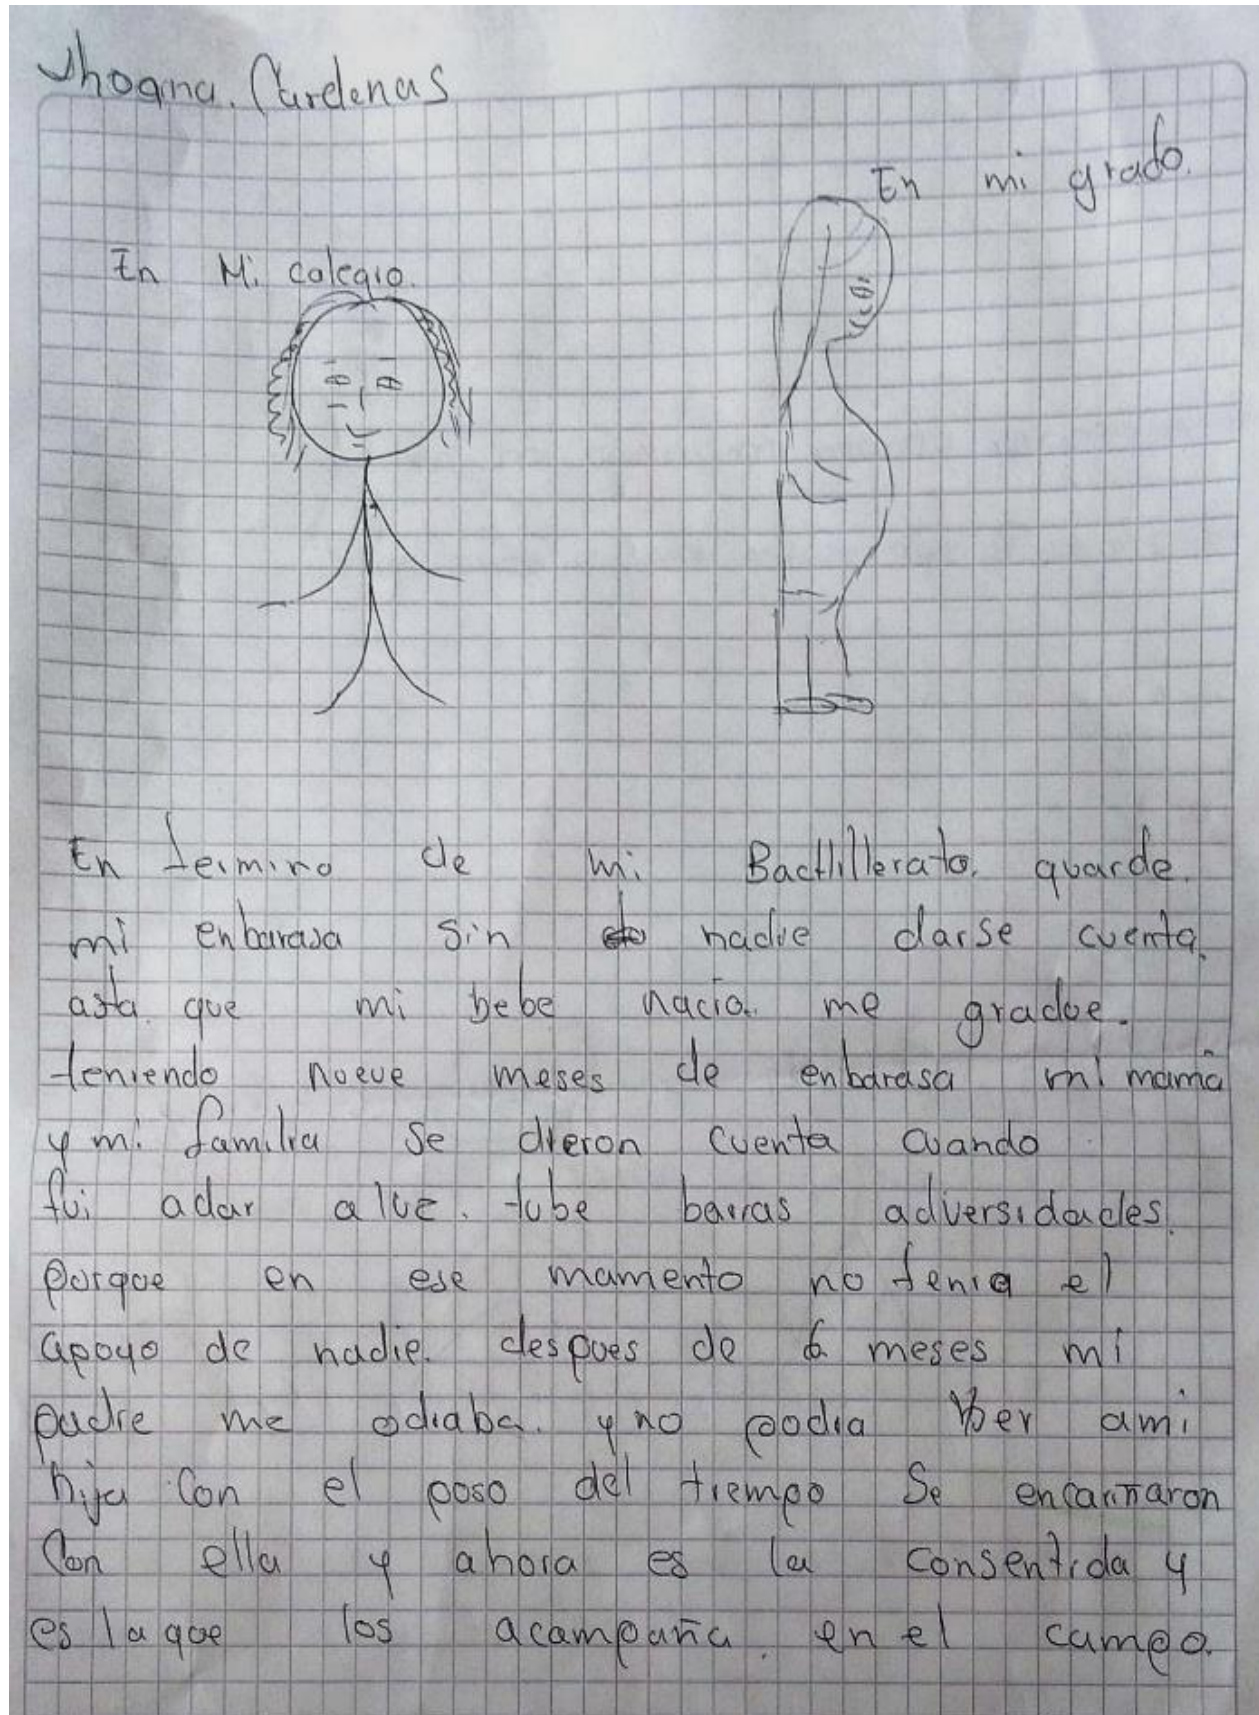 Jhoana. Cardenas
En mi grado.
En Mi colegio.
En termino de mi Bachillerato. guarde.
mi enbarasa sin nadie darse cuenta.
asta que mi bebe nacio. me gradoe.
teniendo nueve meses de enbarasa mi mamá
y mi familia se dieron cuenta cuando
fui adar aluz. tube barras adversidades.
porque en ese mamento no tenia el
apoyo de nadie. despues de 6 meses mi
padre me odiaba. y no podia ver ami
hija con el paso del tiempo Se encariñaron
Con ella y ahora es la consentida y
es la que los acampaña. en el campo.